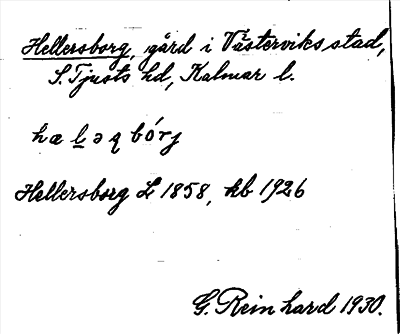 Hellersborg, gård i Västerviks stad,
S. Tjusts hd, Kalmar l.
Hellersborg L 1858, kb 1926
G. Reinhard 1930.